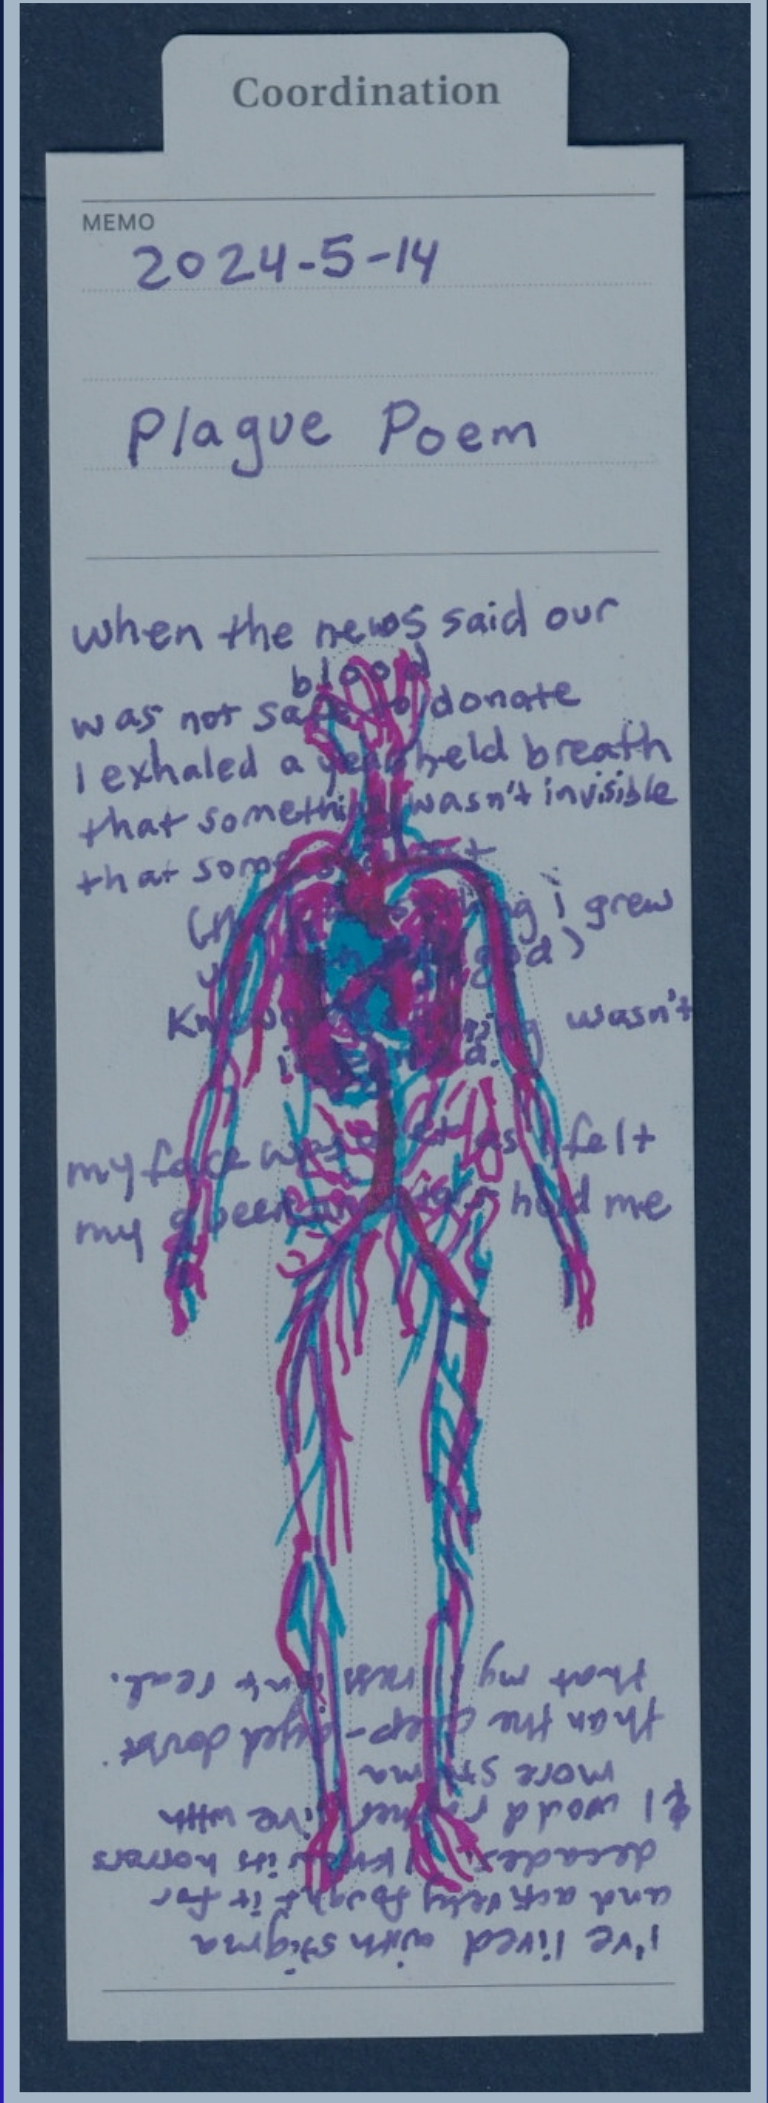 Coordination
MEMO
2024-5-14
Plague Poem
when the news said our
blood
was not safe to donate
I exhaled a year held breath
that something wasn't invisible
that some
i grew
god)
wasn't
my face was wet as I felt
my queer held me
I've lived with stigma
and actively fought it for
decades. I knew its horrors
& I would rather live with
more stigma
than the deep-dyed doubt
that my illness isn't real.